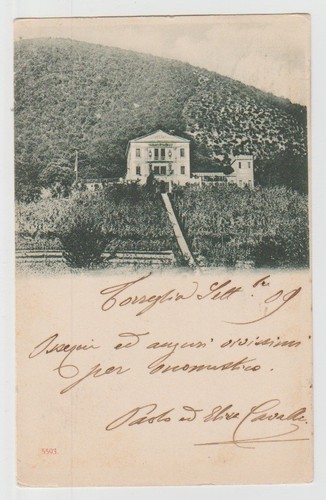 Torreglia Sett.bre 09
Ossequi ed auguri vivissimi
per onomastico.
Paolo ed Elisa Cavalli
5501